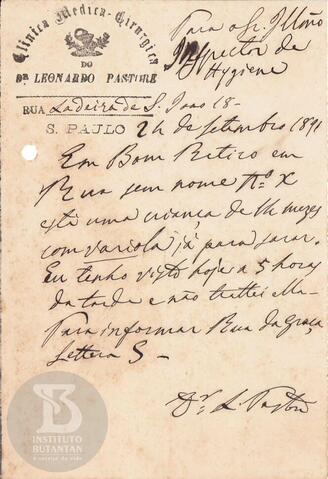 Clinica Medica-Cirurgica
DO
DR LEONARDO PASTORE
Para o Sr. Illmo
Inspector de
Hygiene
RUA Ladeira de S. Joao 18-
S. PAULO 24 de setembro 1891
Em Bom Retiro em
Rua sem nome No. X
está uma criança de 14 mezes
com variola já para sarar.
Eu tenho visto hoje as 5 horas
da tarde e não trattei
Para informar Rua da Graça,
lettera S -
Dr. L. Pastore
INSTITUTO
BUTANTAN
A serviço da vida